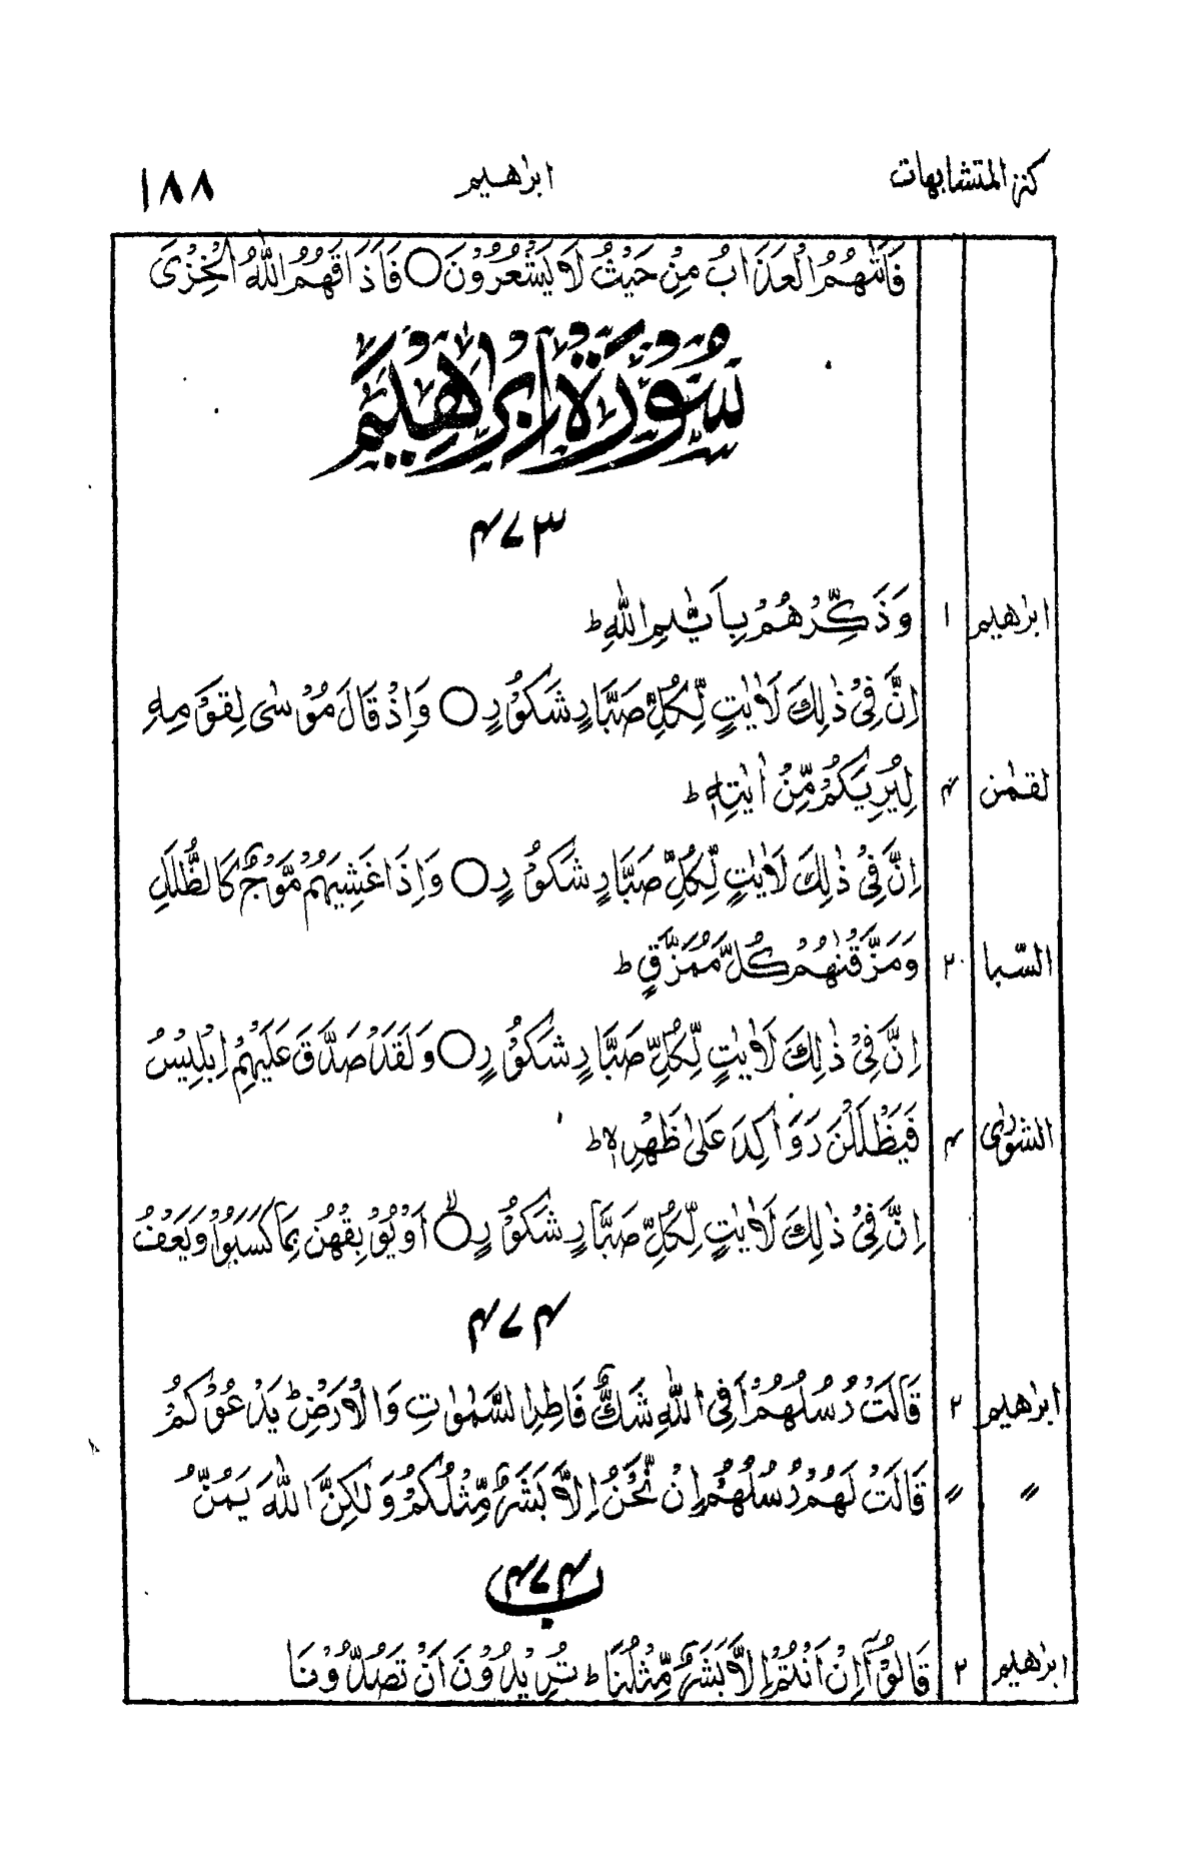 كنز المتشابهات ابراهيم ١٨٨
فَاَتٰىهُمُ الْعَذَابُ مِنْ حَيْثُ لَا يَشْعُرُوْنَ○ فَاَذَاقَهُمُ اللّٰهُ الْخِزْىَ
سُوْرَةُ اِبْرٰهِيْمَ
۴۷۳
ابرٰهيم ١ وَذَكِّرْهُمْ بِاَيّٰىمِ اللّٰهِ ؕ
اِنَّ فِىْ ذٰلِكَ لَاٰيٰتٍ لِّكُلِّ صَبَّارٍ شَكُوْرٍ○ وَاِذْ قَالَ مُوْسٰى لِقَوْمِهِ
لقمٰن ۴ لِيُرِيَكُمْ مِّنْ اٰيٰتِهٖ ؕ
اِنَّ فِىْ ذٰلِكَ لَاٰيٰتٍ لِّكُلِّ صَبَّارٍ شَكُوْرٍ○ وَاِذَا غَشِيَهُمْ مَّوْجٌ كَالظُّلَلِ
السّبا ٢ وَمَزَّقْنٰهُمْ كُلَّ مُمَزَّقٍ ؕ
اِنَّ فِىْ ذٰلِكَ لَاٰيٰتٍ لِّكُلِّ صَبَّارٍ شَكُوْرٍ○ وَلَقَدْ صَدَّقَ عَلَيْهِمْ اِبْلِيْسُ
الشورٰى ۴ فَيَظْلَلْنَ رَوَاكِدَ عَلٰى ظَهْرِهٖ ؕ
اِنَّ فِىْ ذٰلِكَ لَاٰيٰتٍ لِّكُلِّ صَبَّارٍ شَكُوْرٍ○ۙ اَوْ يُوْبِقْهُنَّ بِمَا كَسَبُوْا وَيَعْفُ
۴۷۴
ابرٰهيم ٢ قَالَتْ رُسُلُهُمْ اَفِى اللّٰهِ شَكٌّ فَاطِرِ السَّمٰوٰتِ وَالْاَرْضِ ؕ يَدْعُوْكُمْ
〃 〃 قَالَتْ لَهُمْ رُسُلُهُمْ اِنْ نَّحْنُ اِلَّا بَشَرٌ مِّثْلُكُمْ وَلٰكِنَّ اللّٰهَ يَمُنُّ
۴۷۴ ب
ابرٰهيم ٢ قَالُوْٓا اِنْ اَنْتُمْ اِلَّا بَشَرٌ مِّثْلُنَا ؕ تُرِيْدُوْنَ اَنْ تَصُدُّوْنَا